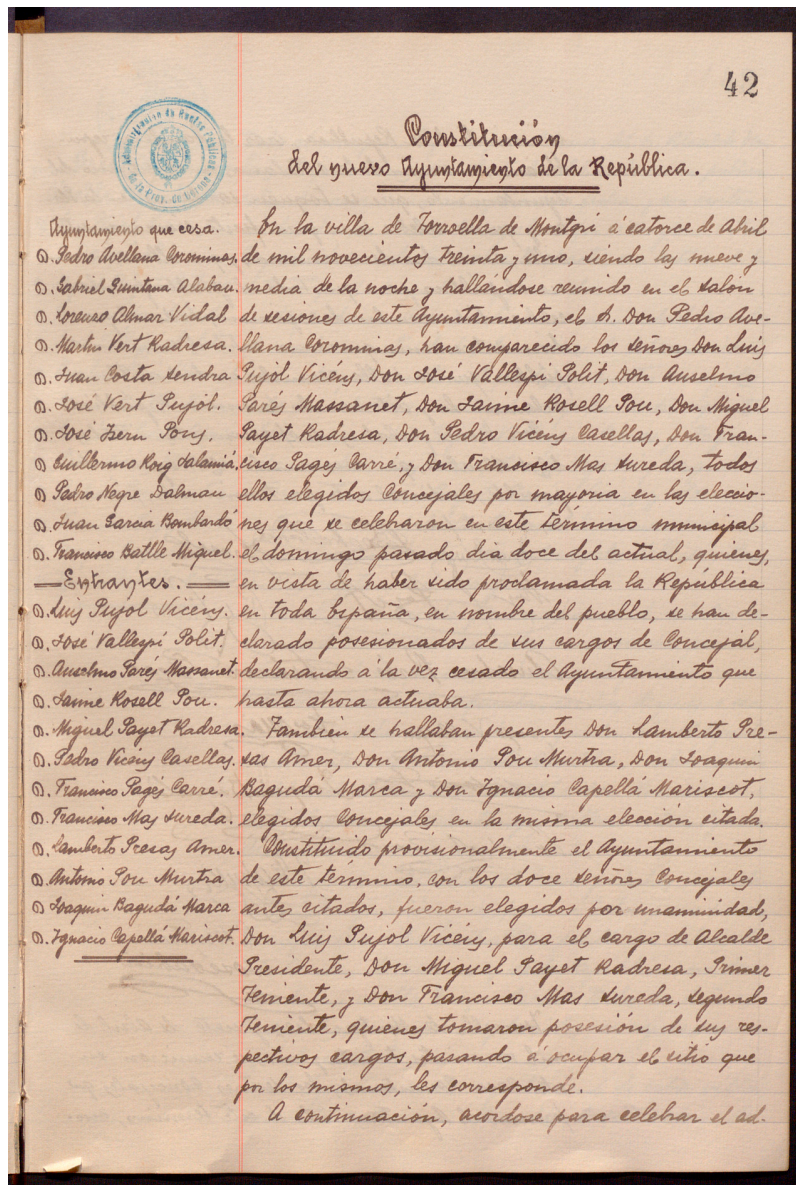 42
Administración de Rentas Públicas
de la Prov. de Gerona
Constitución
del nuevo Ayuntamiento de la República.
Ayuntamiento que cesa.
D. Pedro Avellana Corominas.
D. Gabriel Quintana Alabau.
D. Lorenzo Almar Vidal
D. Martin Vert Radresa.
D. Juan Costa Sendra
D. José Vert Pujol.
D. José Zern Pons.
D. Guillermo Roig Salamiá.
D. Pedro Negre Dalmau
D. Juan Garcia Bombardó
D. Francisco Batlle Miquel.
— Entrantes. —
D. Luis Pujol Vicéns.
D. José Vallespí Polit.
D. Anselmo Parés Massanet.
D. Jaime Rosell Pou.
D. Miguel Payet Radresa.
D. Pedro Vicéns Casellas.
D. Francisco Pagés Carré.
D. Francisco Mas Sureda.
D. Lamberto Presas Amer.
D. Antonio Pou Murtra
D. Joaquin Bagudá Marca
D. Ignacio Capellá Mariscot.
En la villa de Torroella de Montgrí á catorce de Abril
de mil novecientos treinta y uno, siendo las nueve y
media de la noche y hallándose reunido en el salón
de sesiones de este Ayuntamiento, el S. Don Pedro Ave-
llana Corominas, han comparecido los señores Don Luis
Pujol Vicéns, Don José Vallespí Polit, Don Anselmo
Parés Massanet, Don Jaime Rosell Pou, Don Miguel
Payet Radresa, Don Pedro Vicéns Casellas, Don Fran-
cisco Pagés Carré, y Don Francisco Mas Sureda, todos
ellos elegidos Concejales por mayoria en las eleccio-
nes que se celebraron en este término municipal
el domingo pasado dia doce del actual, quienes,
en vista de haber sido proclamada la República
en toda España, en nombre del pueblo, se han de-
clarado posesionados de sus cargos de Concejal,
declarando á la vez cesado el Ayuntamiento que
hasta ahora actuaba.
Tambien se hallaban presentes Don Lamberto Pre-
sas Amer, Don Antonio Pou Murtra, Don Joaquin
Bagudá Marca y Don Ignacio Capellá Mariscot,
elegidos Concejales en la misma elección citada.
Constituido provisionalmente el Ayuntamiento
de este término, con los doce señores Concejales
antes citados, fueron elegidos por unaminidad,
Don Luis Pujol Vicéns, para el cargo de Alcalde
Presidente, Don Miguel Payet Radresa, Primer
Teniente, y Don Francisco Mas Sureda, segundo
Teniente, quienes tomaron posesión de sus res-
pectivos cargos, pasando á ocupar el sitio que
por los mismos, les corresponde.
A continuación, acordose para celebrar el ad-